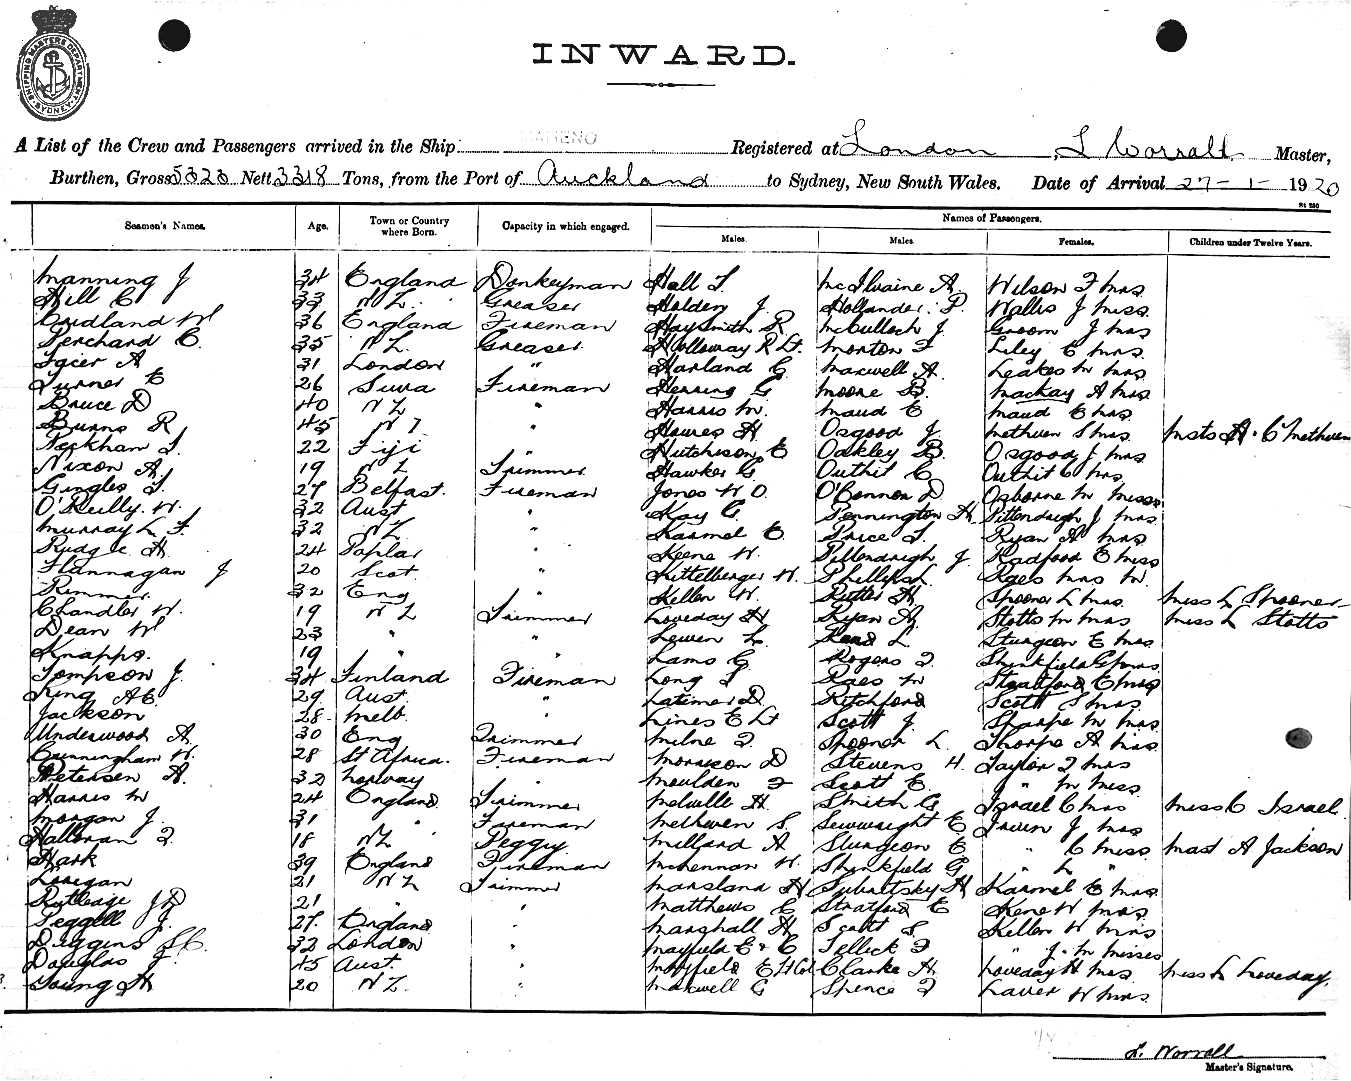 SHIPPING MASTERS DEPARTMENT SYDNEY
INWARD.
A List of the Crew and Passengers arrived in the Ship Registered at London, L Worrall Master,
Burthen, Gross 5323 Nett 3318 Tons, from the Port of Auckland to Sydney, New South Wales. Date of Arrival 27-1-1920
Seamen's Names. Age. Town or Country where Born. Capacity in which engaged. Names of Passengers.
Males. Males. Females. Children under Twelve Years.
Manning J 34 England Donkeyman Hall T. McIlvaine A. Wilson F Mrs
Hill C 33 N Z. Greaser Holden J. Hollander P. Wallis J Miss.
Budland W 36 England Fireman Haysmith R McCulloch J. Groom J Mrs
Perchard C. 35 N Z. Greaser Holloway R Lt. Morton F Liley E Mrs.
Facer A 31 London " Harland G Maxwell A. Leakes M Mrs
Turner E 26 Suva Fireman Herring G Moore B. Mackay A Mrs
Bruce D 40 N Z " Harris M. Maud E Maud E Mrs
Burns R 45 N Z Hawes H Osgood J Methven S Mrs. Msts A. C Methven
Peckham S. 22 Fiji " Hutchison E Oakley B. Osgood J Mrs
Nixon A 19 N Z Trimmer Hawker G Outhit C Outhit C Mrs.
Gingles S. 27 Belfast. Fireman Jones W O. O'Connor D Osborne M Misses
O'Reilly. W. 32 Aust " Kay G. Pennington H. Pittendrigh J Mrs
Murray L F 32 N Z " Karmel E. Price S. Ryan A Mrs
Rudge H. 24 Poplar " Keene W. Pittendrigh J. Radford E Miss
Flannagan J 20 Scot " Kittelberger W. Phillips L. Raes Mrs M.
Rimmer. 32 Eng " Kellen W. Rutter H Spooner L Mrs. Miss L Spooner
Chandler W. 19 N Z Trimmer Loveday H Ryan A. Stotts M Mrs Miss L Stotts
Dean W 23 " " Lewen L L. Sturgeon E Mrs
Knapps. 19 " " Lams G Rogers F. Shinkfield G Mrs
Tompson J. 34 Finland Fireman Long S Raes M Stratford E Mrs
King AE 29 Aust. " Latimer D. Ritchford Scott S Mrs
Jackson 28 Melb " Lines E Lt Scott J. Sharpe M Mrs
Underwood A. 30 Eng Trimmer Milne F. Spooner L. Thorpe A Mrs.
Cunningham W. 28 St Africa. Fireman Morrison D Stevens H. Taylor F Mrs
Petersen A. 32 Norway " Moulden F Scott E. " M Miss.
Harris M 24 England Trimmer Melville H. Smith G Israel C Mrs Miss C Israel.
Morgan J. 31 " Fireman Methven S. Sewwright E Irwin J Mrs
Halloran F. 18 N Z Peggy Millard A Sturgeon E " C Miss Mast A Jackson
Hark 39 England Fireman McKennan W. Shinkfield G " L "
Lonegan 21 N Z Trimmer Marsland H Subattsky H Karmel E Mrs.
Rutledge J D 21 " " Matthews C Stratford E Kene W Mrs.
Peggell J. 27. England Marshall H. Scott S Kellen W Mrs
Diggins S C. 32 London " Mayfield E & C Tellick F " J. M Misses
Douglas J. 45 Aust " Mayfield E Lt Col Clarke H. Loveday H Mrs Miss L Loveday.
Young H 20 N Z. " Maxwell G Spence F Laver W Mrs
L. Worrall
Master's Signature.